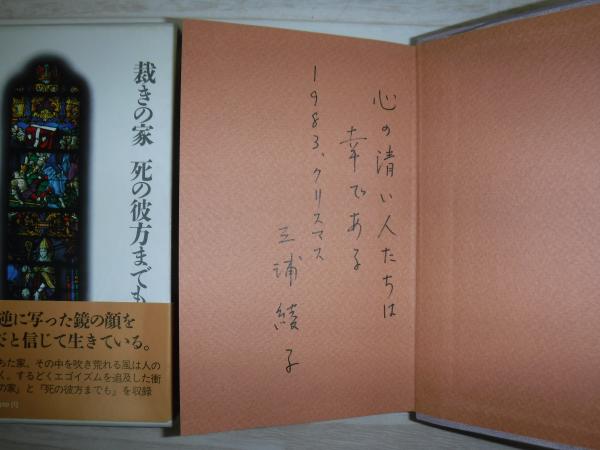 裁きの家 死の彼方までも
逆に写った鏡の顔を
だと信じて生きている。
ちた家。その中を吹き荒れる風は人の
く。するどくエゴイズムを追及した衝
の家」と「死の彼方までも」を収録
心の清い人たちは
幸である
1983、クリスマス
三浦綾子